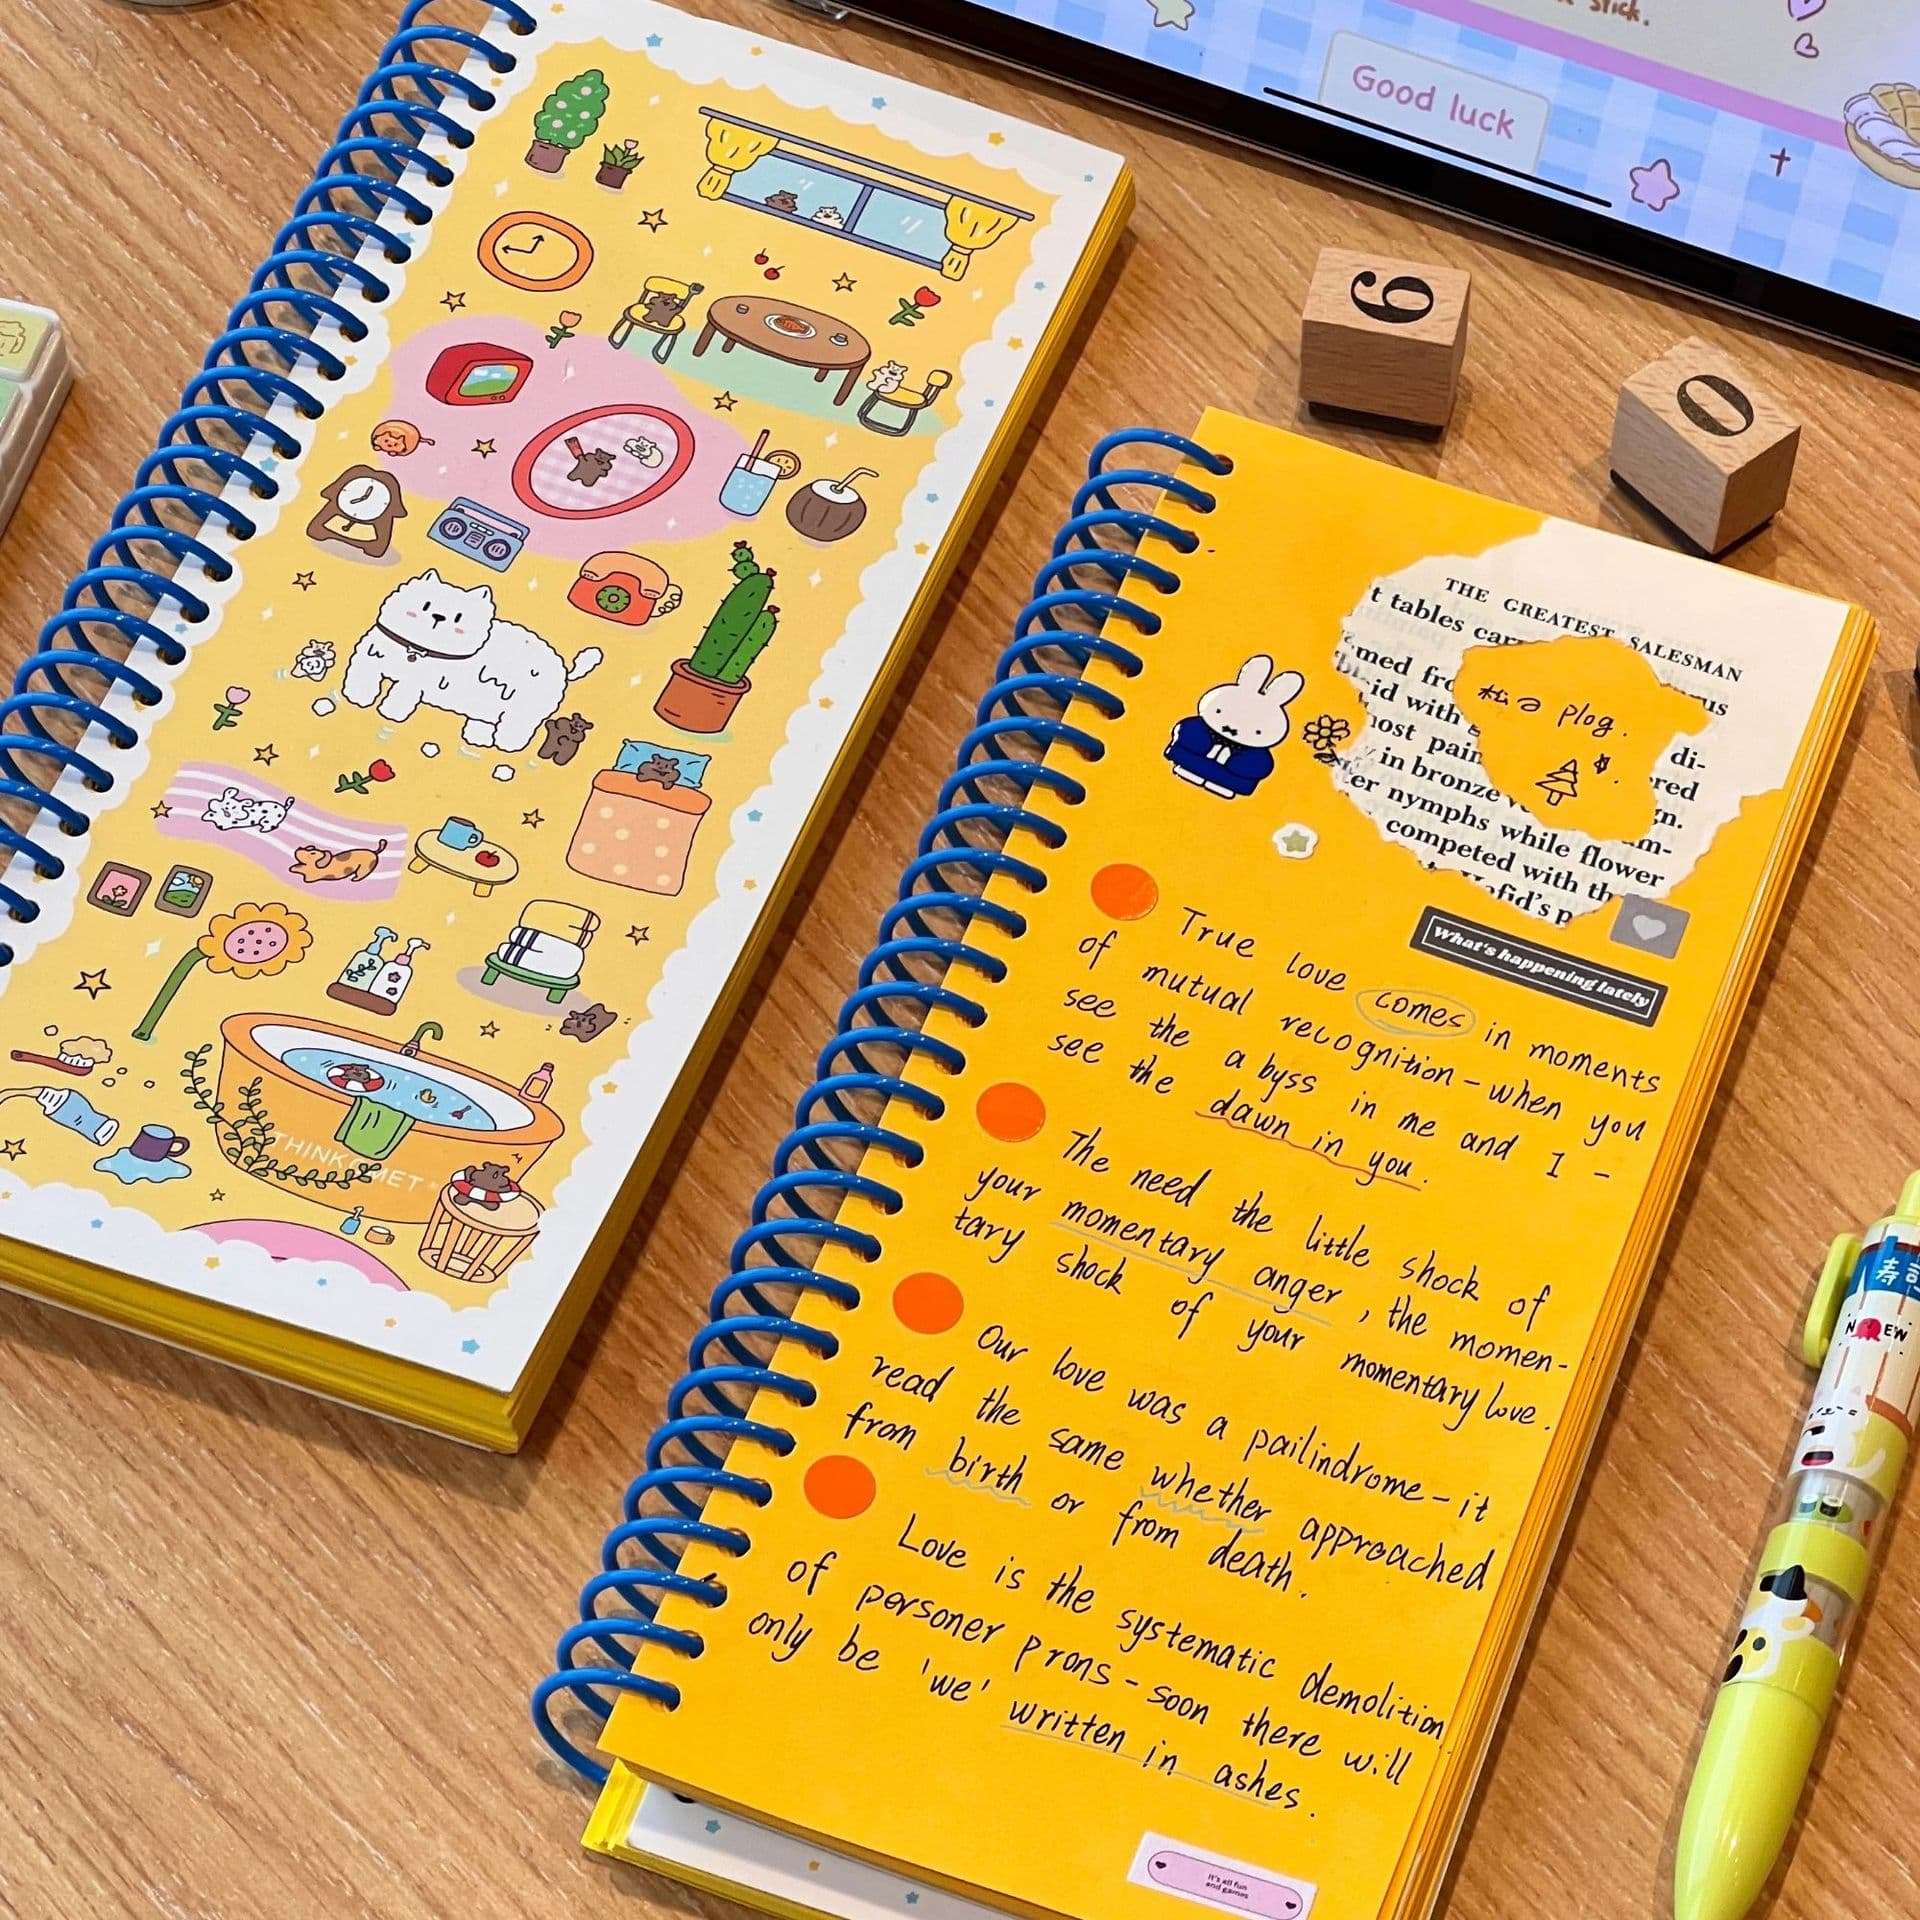 stick.
Good luck
6
0
THE GREATEST SALESMAN
't tables car
med fro
rus
id with
di-
most pain
red
in bronze
gn.
er nymphs while flower
m-
competed with th
Hafid's p
松ə plog.
What's happening lately
True love comes in moments
of mutual recognition – when you
see the abyss in me and I –
see the dawn in you.
The need the little shock of
your momentary anger, the momen-
tary shock of your momentary love.
Our love was a pailindrome – it
read the same whether approached
from birth or from death.
Love is the systematic demolition
of personer prons – soon there will
only be 'we' written in ashes.
It's all fun
and games
THINK MET
寿司
N EW